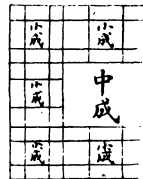 小成
中成
小成
小成
小成
小成